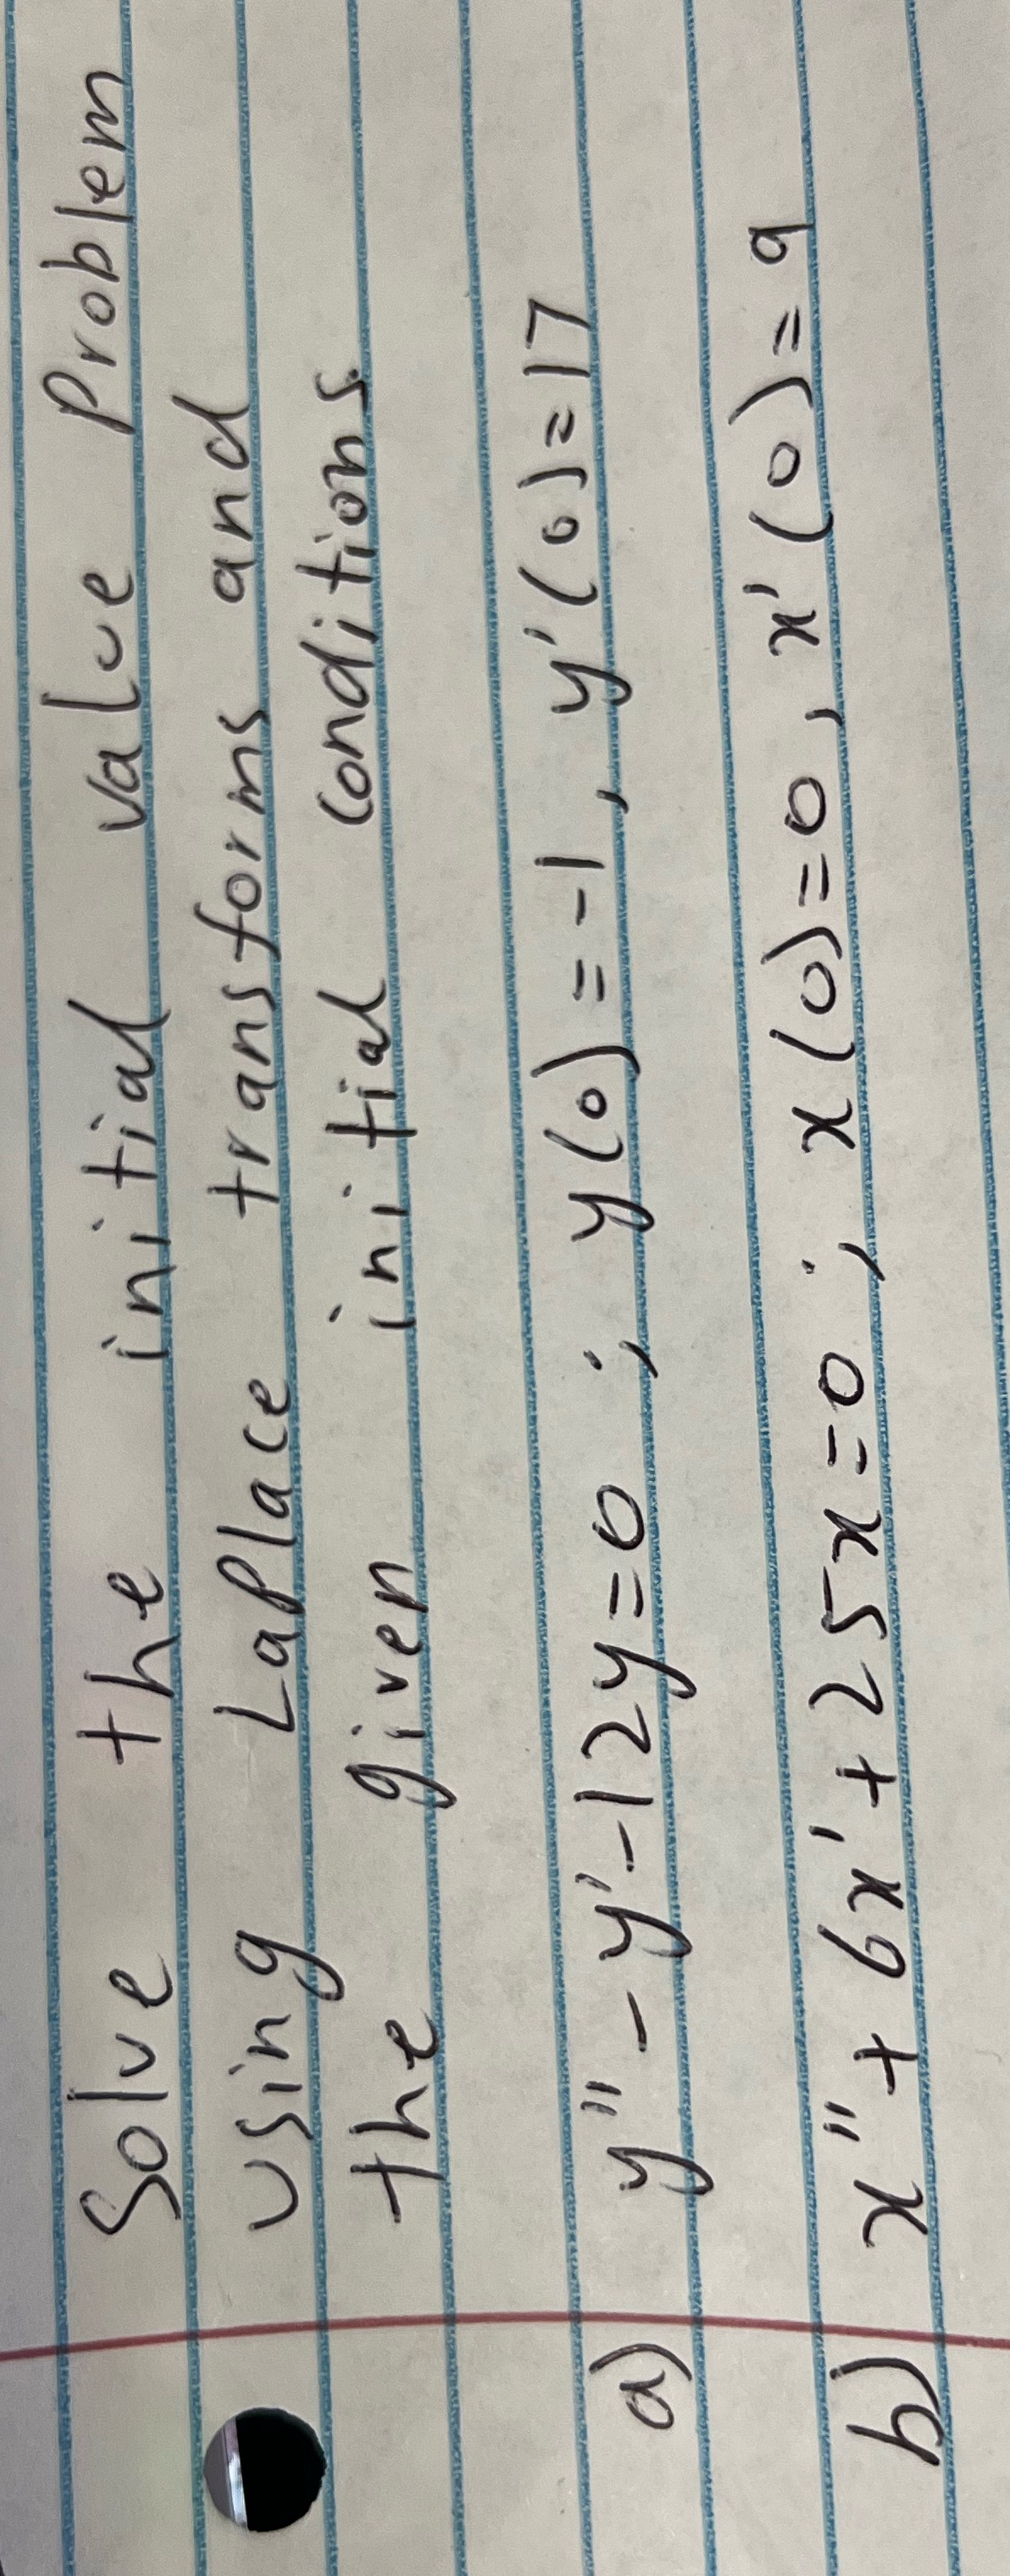 Solve the initial value Problem
using LaPlace transforms and
the given initial conditions.
a) y'' - y' - 12y = 0 ; y(0) = -1, y'(0) = 17
b) x'' + 6x' + 25x = 0 ; x(0) = 0, x'(0) = 9